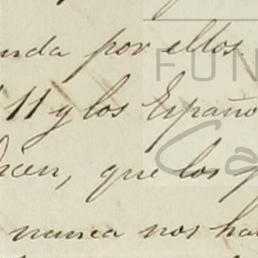 por ellos
11 y los Españo
que los
nunca nos ha
FUN
Ca